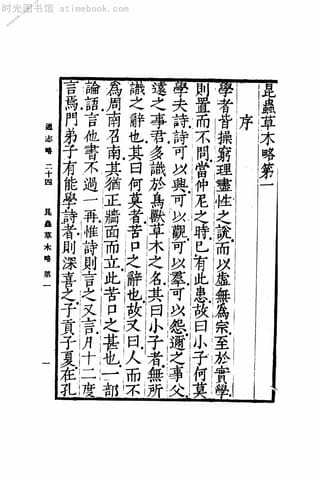 时光图书馆 - atimebook.com
昆蟲草木略第一
序
學者皆操窮理盡性之說而以虛無爲宗至於實學
則置而不問當仲尼之時已有此患故曰小子何莫
學夫詩詩可以興可以觀可以羣可以怨邇之事父
遠之事君多識於鳥獸草木之名其曰小子者無所
識之辭也其曰何莫者苦口之辭也故又曰人而不
爲周南召南其猶正牆面而立此苦口之甚也一部
論語言他書不過一再惟詩則言之又言凡十二度
言焉門弟子有能學詩者則深喜之子貢子夏在孔
通志略 二十四 昆蟲草木略 第一 一